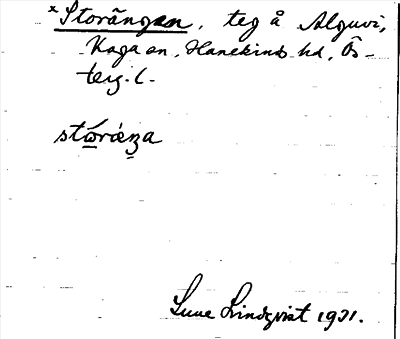 ×Storängen, teg å Alguvi,
Kaga sn, Hanekinds hd, Ös-
terg. l.
stω̄́rǽŋa
Sune Lindqvist 1931.